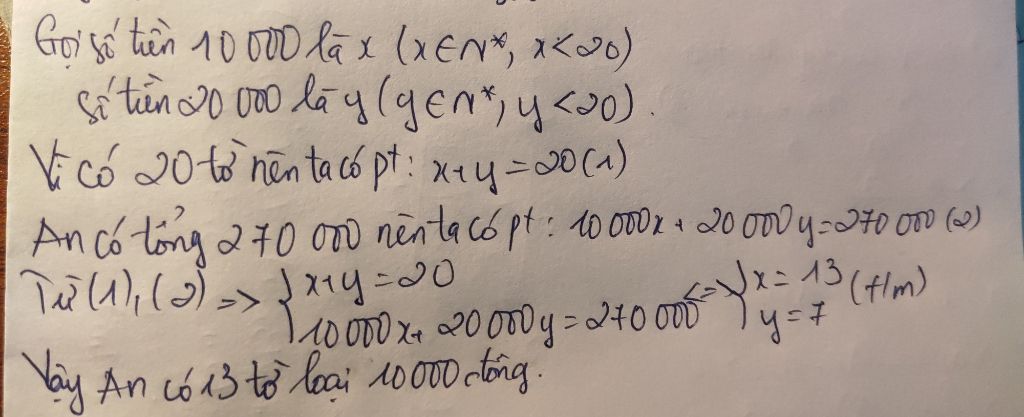 Gọi số tiền 10 000 là x (x∈N*, x<20)
số tiền 20 000 là y (y∈N*, y<20).
Vì có 20 tờ nên ta có pt: x+y=20 (1)
An có tổng 270 000 nên ta có pt: 10 000x + 20 000y=270 000 (2)
Từ (1), (2) => { x+y=20
10 000x + 20 000y = 270 000 <=> { x= 13 (t/m)
y= 7
Vậy An có 13 tờ loại 10 000 đồng.